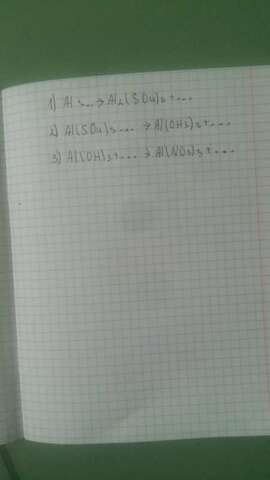 1) Al +... → Al₂(SO₄)₃ +...
2) Al(SO₄)₃... → Al(OH)₃ +...
3) Al(OH)₃ +... → Al(NO₃)₃ +...